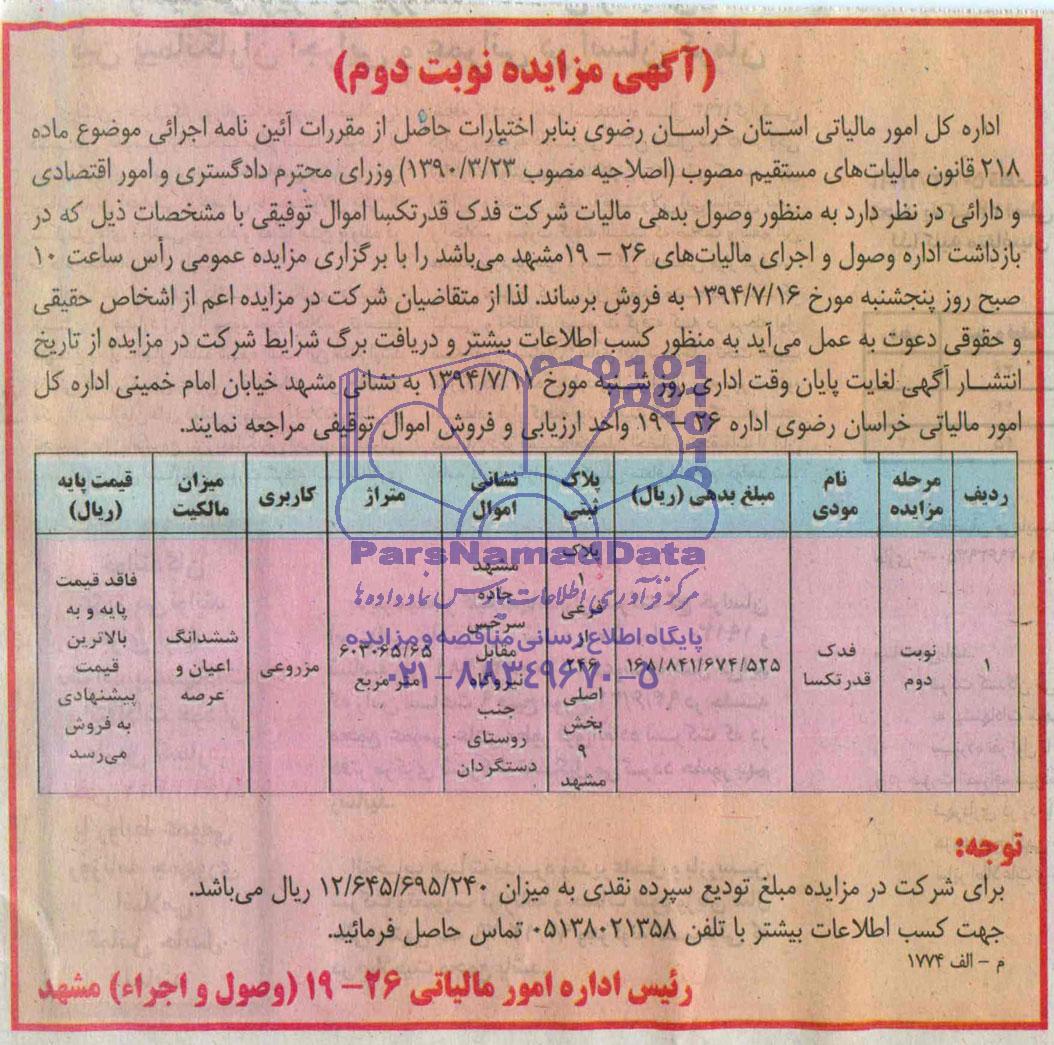 (آگهی مزایده نوبت دوم)
اداره کل امور مالیاتی استان خراسان رضوی بنابر اختیارات حاصل از مقررات آئین نامه اجرائی موضوع ماده
۲۱۸ قانون مالیات‌های مستقیم مصوب (اصلاحیه مصوب ۱۳۹۰/۳/۲۳) وزرای محترم دادگستری و امور اقتصادی
و دارائی در نظر دارد به منظور وصول بدهی مالیات شرکت فدک قدرتکسا اموال توقیفی با مشخصات ذیل که در
بازداشت اداره وصول و اجرای مالیات‌های ۲۶ – ۱۹مشهد می‌باشد را با برگزاری مزایده عمومی رأس ساعت ۱۰
صبح روز پنجشنبه مورخ ۱۳۹۴/۷/۱۶ به فروش برساند. لذا از متقاضیان شرکت در مزایده اعم از اشخاص حقیقی
و حقوقی دعوت به عمل می‌آید به منظور کسب اطلاعات بیشتر و دریافت برگ شرایط شرکت در مزایده از تاریخ
انتشار آگهی لغایت پایان وقت اداری روز شنبه مورخ ۱۳۹۴/۷/۱۱ به نشانی مشهد خیابان امام خمینی اداره کل
امور مالیاتی خراسان رضوی اداره ۲۶ – ۱۹ واحد ارزیابی و فروش اموال توقیفی مراجعه نمایند.
ردیف | مرحله مزایده | نام مودی | مبلغ بدهی (ریال) | پلاک ثبتی | نشانی اموال | متراژ | کاربری | میزان مالکیت | قیمت پایه (ریال)
۱ | نوبت دوم | فدک قدرتکسا | ۱۶۸/۸۴۱/۶۷۴/۵۲۵ | پلاک ۱ فرعی از ۲۴۶ اصلی بخش ۹ مشهد | مشهد جاده سرخس مقابل نیروگاه جنب روستای دستگردان | ۶۰۳۰۶۵/۶۵ متر مربع | مزروعی | ششدانگ اعیان و عرصه | فاقد قیمت پایه و به بالاترین قیمت پیشنهادی به فروش می‌رسد
ParsNamadData
مرکز فرآوری اطلاعات پارس نماد داده‌ها
پایگاه اطلاع رسانی مناقصه و مزایده
۰۲۱-۸۸۳۴۹۶۷۰-۵
توجه:
برای شرکت در مزایده مبلغ تودیع سپرده نقدی به میزان ۱۲/۶۴۵/۶۹۵/۲۴۰ ریال می‌باشد.
جهت کسب اطلاعات بیشتر با تلفن ۰۵۱۳۸۰۲۱۳۵۸ تماس حاصل فرمائید.
م – الف ۱۷۷۴
رئیس اداره امور مالیاتی ۲۶– ۱۹ (وصول و اجراء) مشهد